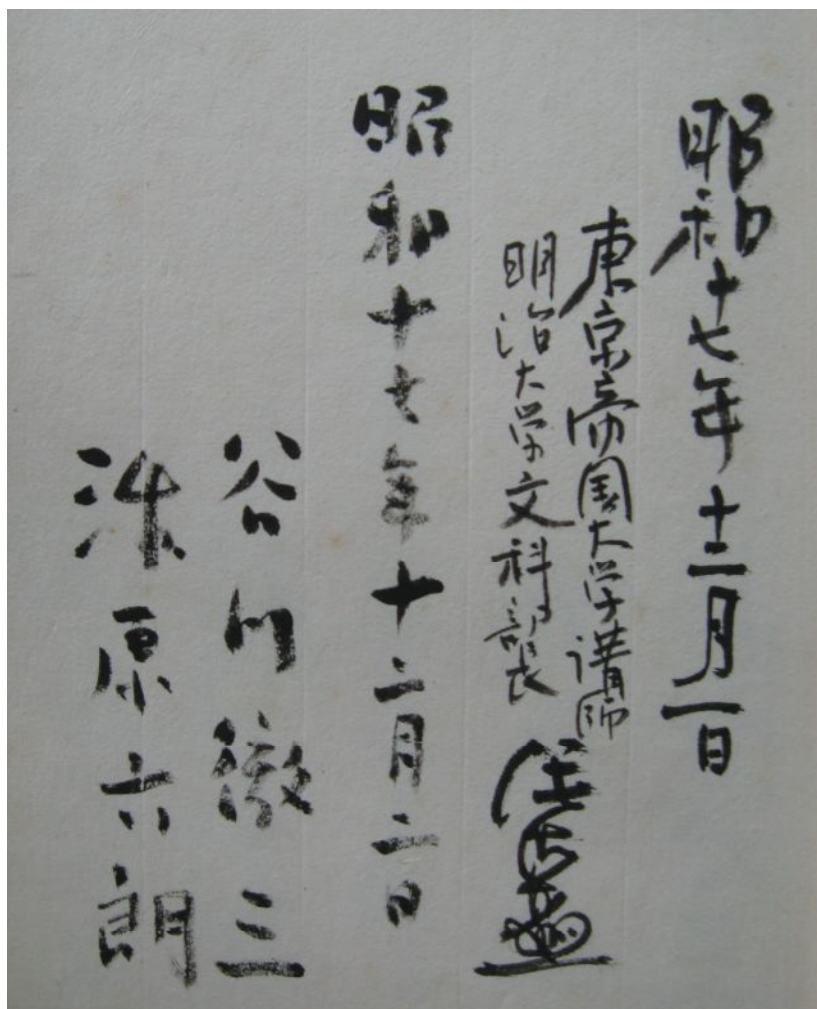 昭和十七年十二月一日
東京帝国大学講師
明治大学文科部長
昭和十七年十二月二日
谷川徹三
原六郎